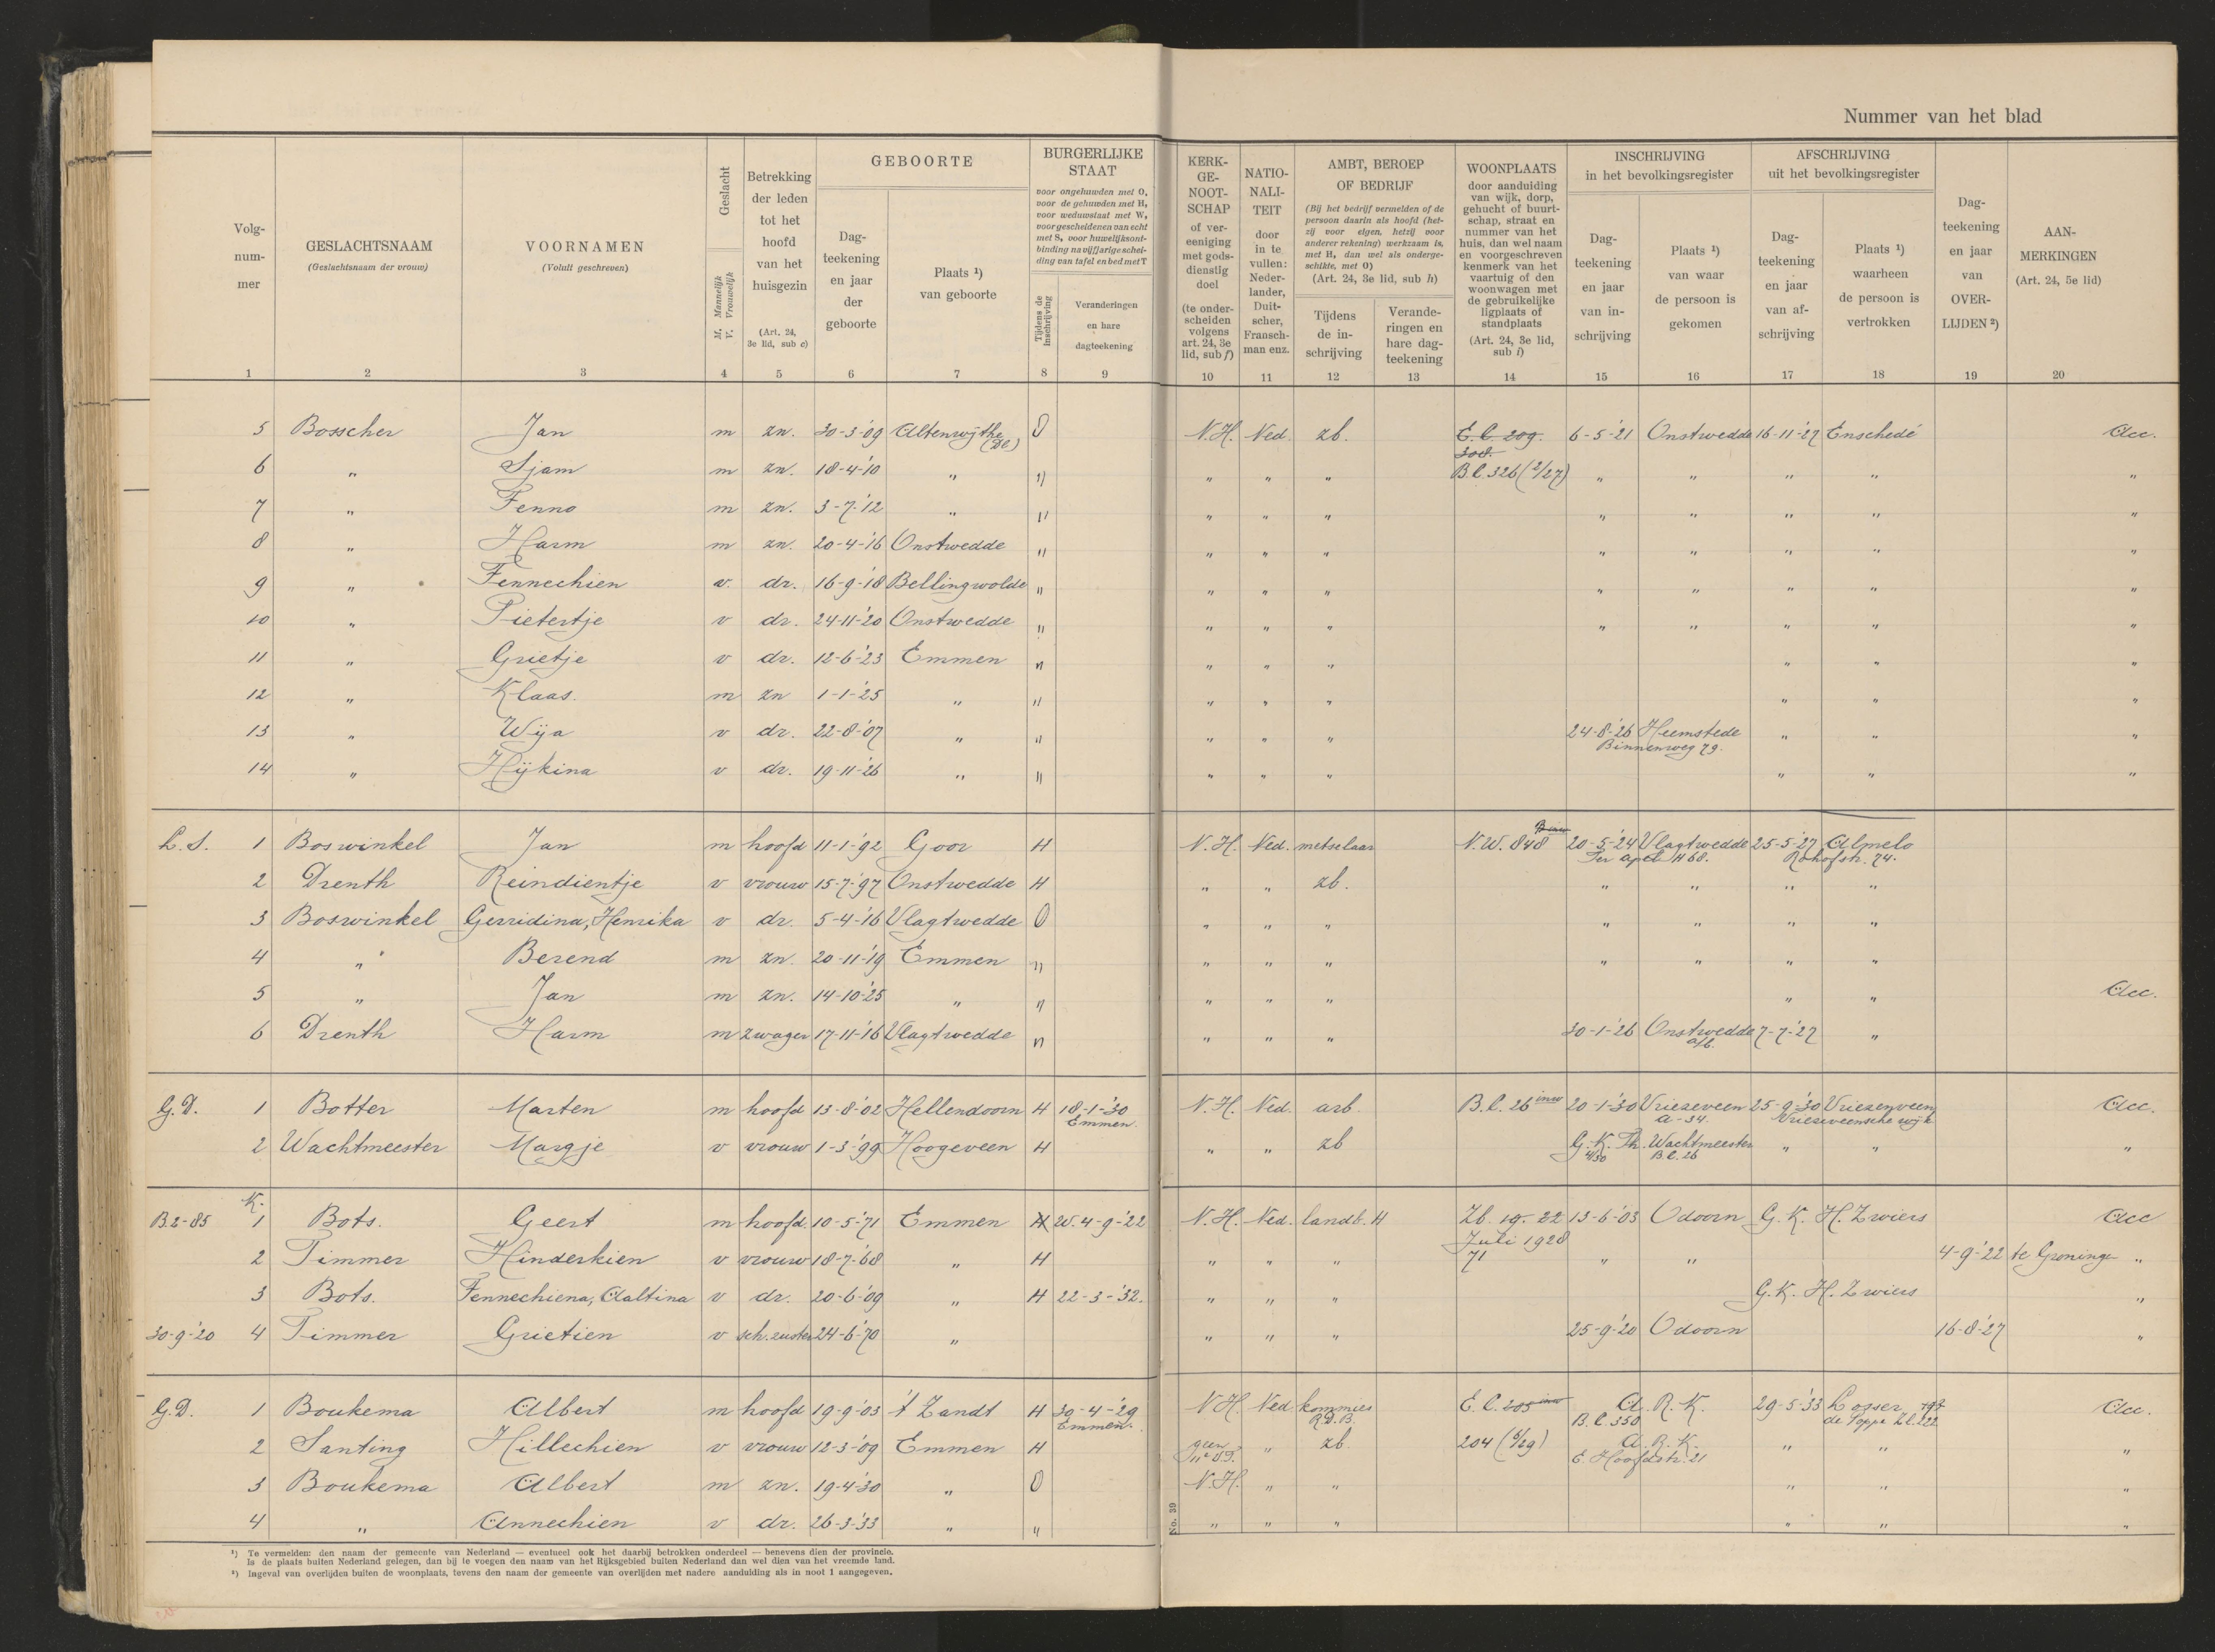 Nummer van het blad
Volg-
num-
mer
GESLACHTSNAAM
(Geslachtsnaam der vrouw)
VOORNAMEN
(Voluit geschreven)
Geslacht
M. Mannelijk
V. Vrouwelijk
Betrekking
der leden
tot het
hoofd
van het
huisgezin
(Art. 24,
3e lid, sub c)
GEBOORTE
Dag-
teekening
en jaar
der
geboorte
Plaats ¹)
van geboorte
BURGERLIJKE
STAAT
voor ongehuwden met O,
voor de gehuwden met H,
voor weduwstaat met W,
voor gescheidenen van echt
met S, voor huwelijksont-
binding na vijfjarige schei-
ding van tafel en bed met T
Tijdens de
inschrijving
Veranderingen
en hare
dagteekening
KERK-
GE-
NOOT-
SCHAP
of ver-
eeniging
met gods-
dienstig
doel
(te onder-
scheiden
volgens
art. 24, 3e
lid, sub f)
NATIO-
NALI-
TEIT
door
in te
vullen:
Neder-
lander,
Duit-
scher,
Fransch-
man enz.
AMBT, BEROEP
OF BEDRIJF
(Bij het bedrijf vermelden of de
persoon daarin als hoofd (het-
zij voor eigen, hetzij voor
anderer rekening) werkzaam is,
met H, dan wel als onderge-
schikte, met O)
(Art. 24, 3e lid, sub h)
Tijdens
de in-
schrijving
Verande-
ringen en
hare dag-
teekening
WOONPLAATS
door aanduiding
van wijk, dorp,
gehucht of buurt-
schap, straat en
nummer van het
huis, dan wel naam
en voorgeschreven
kenmerk van het
vaartuig of den
woonwagen met
de gebruikelijke
ligplaats of
standplaats
(Art. 24, 3e lid,
sub i)
INSCHRIJVING
in het bevolkingsregister
Dag-
teekening
en jaar
van in-
schrijving
Plaats ¹)
van waar
de persoon is
gekomen
AFSCHRIJVING
uit het bevolkingsregister
Dag-
teekening
en jaar
van af-
schrijving
Plaats ¹)
waarheen
de persoon is
vertrokken
Dag-
teekening
en jaar
van
OVER-
LIJDEN ²)
AAN-
MERKINGEN
(Art. 24, 5e lid)
1 2 3 4 5 6 7 8 9 10 11 12 13 14 15 16 17 18 19 20
5 Bosscher Jan m zn. 30-3-'09 Altenwÿthe (Dl) O N.H. Ned. zb. E.C. 209. 6-5-'21 Onstwedde 16-11-'27 Enschedé Acc.
308.
6 " Sjam m zn. 18-4-'10 " " " " " B.C. 326 (2/27) " " " " "
7 " Fenno m zn. 3-7-'12 " " " " " " " " " "
8 " Harm m zn. 20-4-'16 Onstwedde " " " " " " " " "
9 " Fennechien v. dr. 16-9-'18 Bellingwolde " " " " " " " " "
10 " Pietertje v dr. 24-11-'20 Onstwedde " " " " " " " " "
11 " Grietje v dr. 12-6-'23 Emmen " " " " " " "
12 " Klaas. m zn 1-1-'25 " " " " " " " "
13 " Wÿa v dr. 22-8-'07 " " " " " 24-8-'26 Heemstede " " "
Binnenweg 79.
14 " Hÿkina v dr. 19-11-'26 " " " " " " " "
L.S. 1 Boswinkel Jan m hoofd 11-1-'92 Goor H N.H. Ned. metselaar N.W. 848 20-5-'24 Vlagtwedde 25-5-'27 Almelo
Ter apel H 68.
2 Drenth Reindientje v vrouw 15-7-'97 Onstwedde H " " zb. " " " "
3 Boswinkel Gerridina, Henrika v dr. 5-4-'16 Vlagtwedde O " " " " " " "
4 " Berend m zn. 20-11-'19 Emmen " " " " " " " "
5 " Jan m zn. 14-10-'25 " " " " " " " Acc.
6 Drenth Harm m zwager 17-11-'16 Vlagtwedde " " " " 30-1-'26 Onstwedde 7-7-'27 "
G.D. 1 Botter Marten m hoofd 13-8-'02 Hellendoorn H 18-1-'30 N.H. Ned. arb. B.C. 26 inw 20-1-'30 Vriezeveen 25-9-'30 Vriezenveen Acc.
Emmen. a-34. Vriezeveensche wÿk
2 Wachtmeester Margje v vrouw 1-3-'99 Hoogeveen H " " zb G.K. Th. Wachtmeester " " "
4/30 B.C. 26
K.
B.2-85 1 Bots. Geert m hoofd. 10-5-'71 Emmen H W. 4-9-'22 N.H. Ned. landb. H Zb. 19. 22 13-6-'03 Odoorn G.K. H. Zwiers Acc
Juli 1928
2 Timmer Hinderkien v vrouw 18-7-'68 " H " " " 71 " " 4-9-'22 te Groningen "
3 Bots. Fennechiena, Aaltina v dr. 20-6-'09 " H 22-3-'32. " " " G.K. H. Zwiers "
30-9-'20 4 Timmer Grietien v sch.zuster 24-6-'70 " " " " 25-9-'20 Odoorn 16-8-'27 "
G.D. 1 Boukema Albert m hoofd 19-9-'03 't Zandt H 30-4-'29 N.H. Ned kommies E.C. 205 inw A. R. K. 29-5-'33 Losser Acc.
Emmen. R.D.B. B.C. 350 de Poppe
2 Santing Hillechien v vrouw 12-3-'09 Emmen H geen " zb 204 (6/29) A. R. K. " " "
E. Hoofdstr. 21
3 Boukema Albert m zn. 19-4-'30 " O N.H. " " " " "
4 " Annechien v dr. 26-3-'33 " " " " " " " "
No. 39
¹) Te vermelden: den naam der gemeente van Nederland — eventueel ook het daarbij betrokken onderdeel — benevens dien der provincie.
Is de plaats buiten Nederland gelegen, dan bij te voegen den naam van het Rijksgebied buiten Nederland dan wel dien van het vreemde land.
²) Ingeval van overlijden buiten de woonplaats, tevens den naam der gemeente van overlijden met nadere aanduiding als in noot 1 aangegeven.